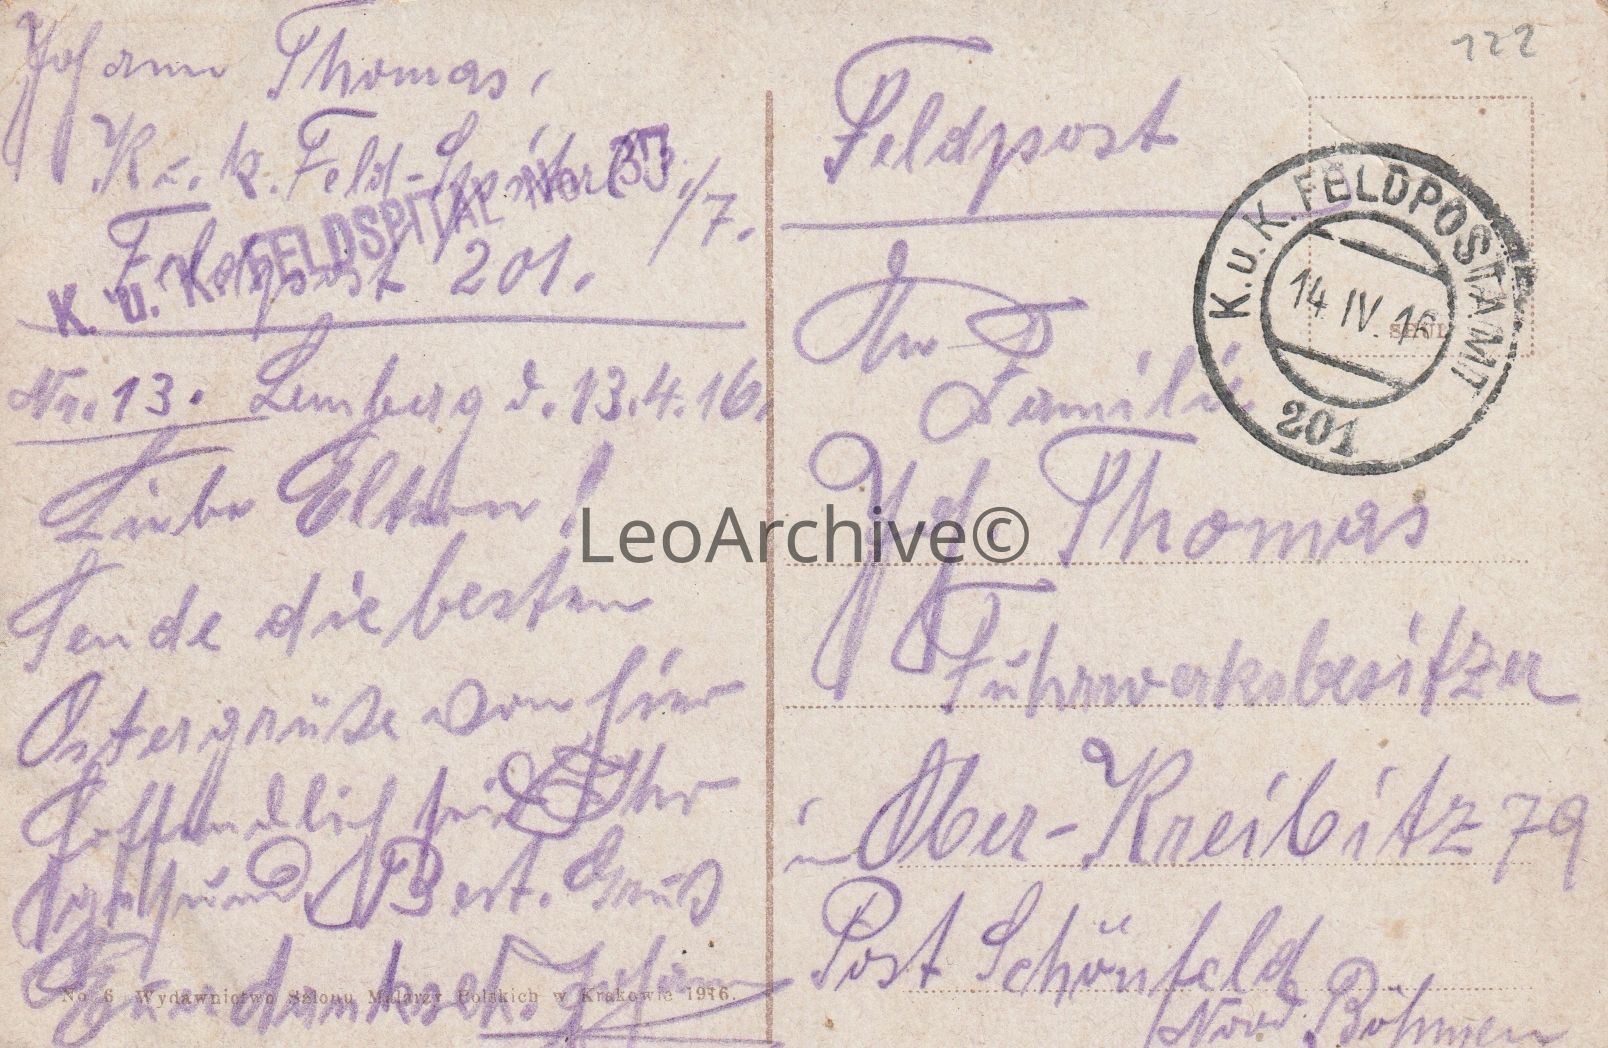 Johann Thomas,
K. u. k. Feld-Spital 1/7.
Feldpost 201.
K. u. K. FELDSPITAL No.
Nr. 13. Lemberg d. 13.4.16.
Liebe Eltern!
Sende die besten
Ostergrüße von hier
Hoffendlich seid Ihr
gesund. Best. Gruß
Euer danks. Johann
No 6 Wydawnictwo Salonu Malarzy Polskich w Krakowie 1916.
122
Feldpost
K.u.K. FELDPOSTAMT
14 IV. 16
201
An
Familie
Jos Thomas
Fuhrwerksbesitzer
in Ober-Kreibitz 79
Post Schönfeld
Nord Böhmen
LeoArchive©